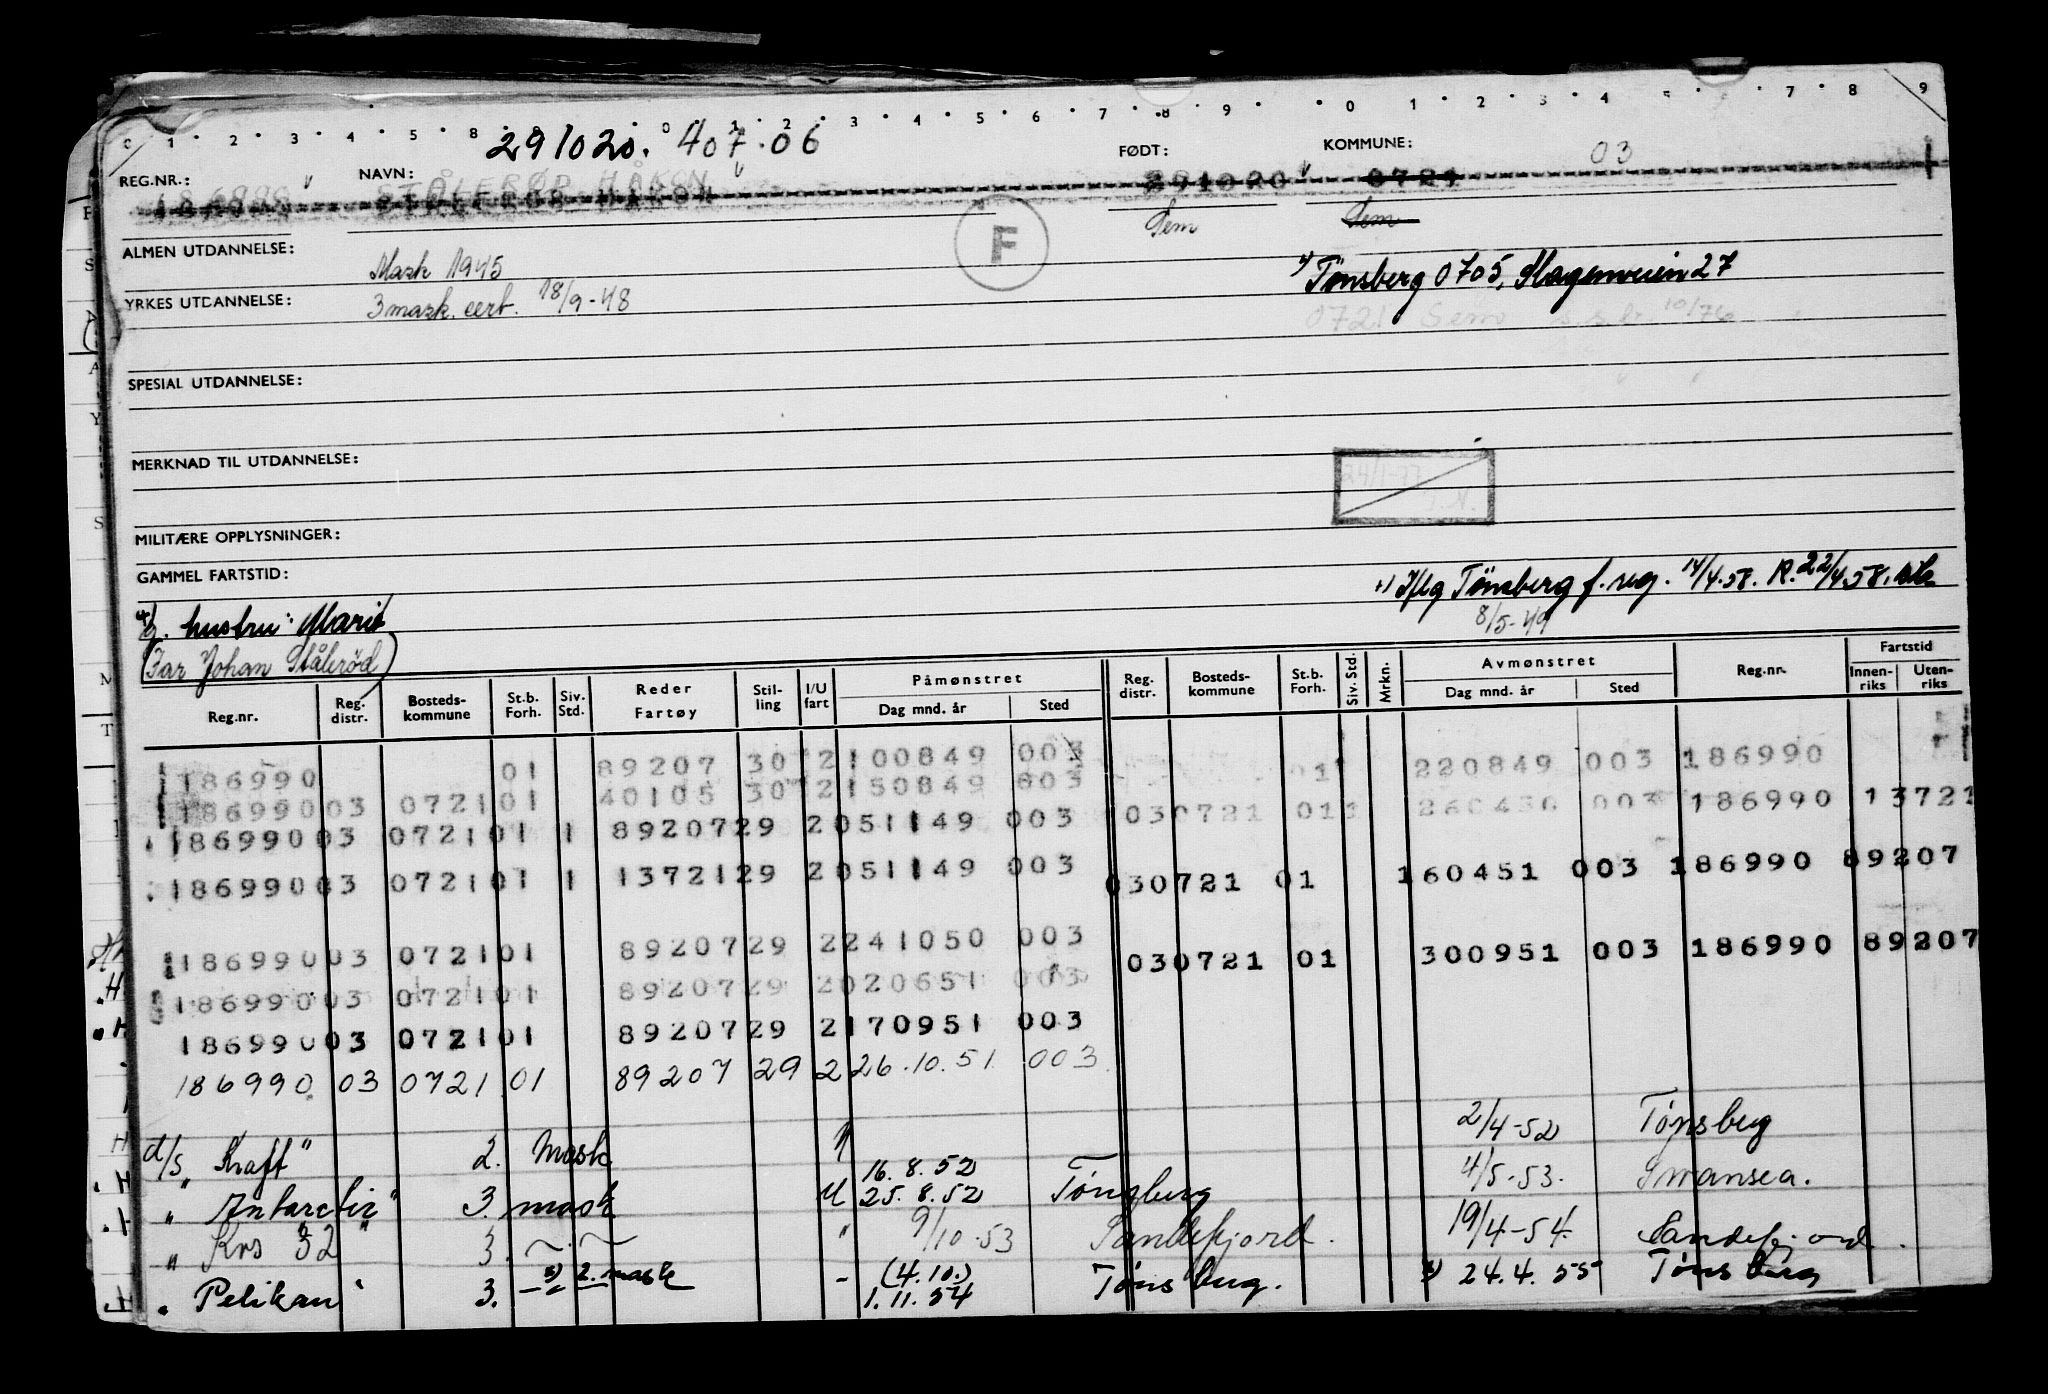 0 1 2 3 4 5 8 9 0 1 2 3 4 5 6 7 8 9 0 1 2 3 4 7 8 9
291020. 407.06
FØDT: KOMMUNE: 03
REG.NR.: NAVN: STÅLERØD HÅKON 291020 0721
Sem Sem
F
ALMEN UTDANNELSE: Mask 1945
4) Tønsberg 0705, Slagenveien 27
YRKES UTDANNELSE: 3 mask. cert. 18/9-48
0721 Sem 10/76
SPESIAL UTDANNELSE:
MERKNAD TIL UTDANNELSE:
24/1-77
MILITÆRE OPPLYSNINGER:
GAMMEL FARTSTID:
Iflg Tønsberg f. reg. 14/4.58. R. 22/4.58.
8/5-49
4/ g. hustru: Marit
(Far Johan Stålerød)
Reg.nr. Reg. distr. Bosteds-kommune St.b. Forh. Siv. Std. Reder Fartøy Stil-ling I/U fart Påmønstret Dag mnd. år Sted Reg. distr. Bosteds-kommune St.b. Forh. Siv. Std. Mrkn. Avmønstret Dag mnd. år Sted Reg.nr. Fartstid Innen-riks Uten-riks
186990 01 89207 30 2 100849 003 01 220849 003 186990
186990 03 0721 01 40105 30 2 150849 003 030721 01 003 186990 13721
186990 03 0721 01 1 89207 29 2 051149 003
186990 03 0721 01 1 13721 29 2 051149 003 030721 01 160451 003 186990 89207
186990 03 0721 01 89207 29 2 241050 003 030721 01 300951 003 186990 89207
186990 03 0721 01 89207 29 2 020651 003
186990 03 0721 01 89207 29 2 170951 003
186990 03 0721 01 89207 29 2 26.10.51 003
d/s "Kraft" 2. mask 2/4-52 Tønsberg
16.8.52
" Antarctic" 3. mask U 25.8.52 Tønsberg 4/5-53. Swansea.
" Kos 32 " 3. " 9/10.53 Sandefjord. 19/4-54. Sandefjord.
" Pelikan 3. 2. mask - (4.10.) 1.11.54 Tønsberg. 24.4.55 Tønsberg